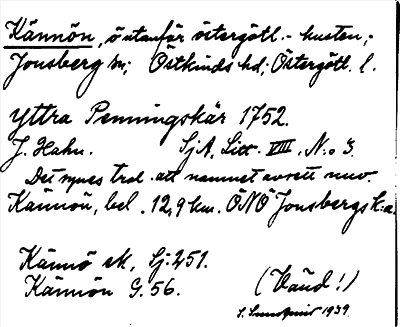 Kännön, ö utanför östergötl.- kusten,-
Jonsberg sn; Östkinds hd; Östergötl. l.
Yttra Penningskär 1752.
J. Hahn. SjA, Litt. VIII, N:o 3.
Det synes trol. att namnet avsett nuv.
Kännön, bel. 12,9 km. ÖNÖ Jonsbergs k:a.
Kännö ek, Sj: 251.
Kännön G. 56. (Vänd!)
1939